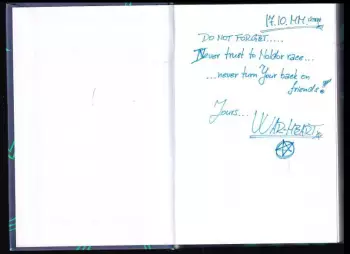 17.10. MM
DO NOT FORGET.....
Never trust to Noldor race...
...never turn Your back on
friends!
Yours...
WAR-HEART